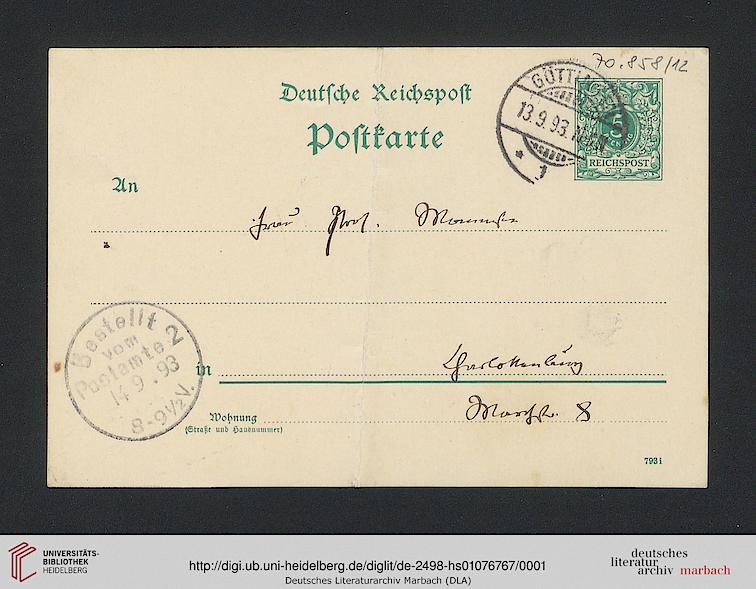 70.858/12
Deutsche Reichspost
Postkarte
GÖTTIN
13.9.93.
* 1
5
REICHSPOST
An
Frau Prof. Mommsen
Bestellt
vom
Postamte 2
14.9.93
8-9½V.
in Charlottenburg
Wohnung Marchstr. 8
(Straße und Hausnummer)
793 i
UNIVERSITÄTS-
BIBLIOTHEK
HEIDELBERG
http://digi.ub.uni-heidelberg.de/diglit/de-2498-hs01076767/0001
Deutsches Literaturarchiv Marbach (DLA)
deutsches
literatur
archiv marbach